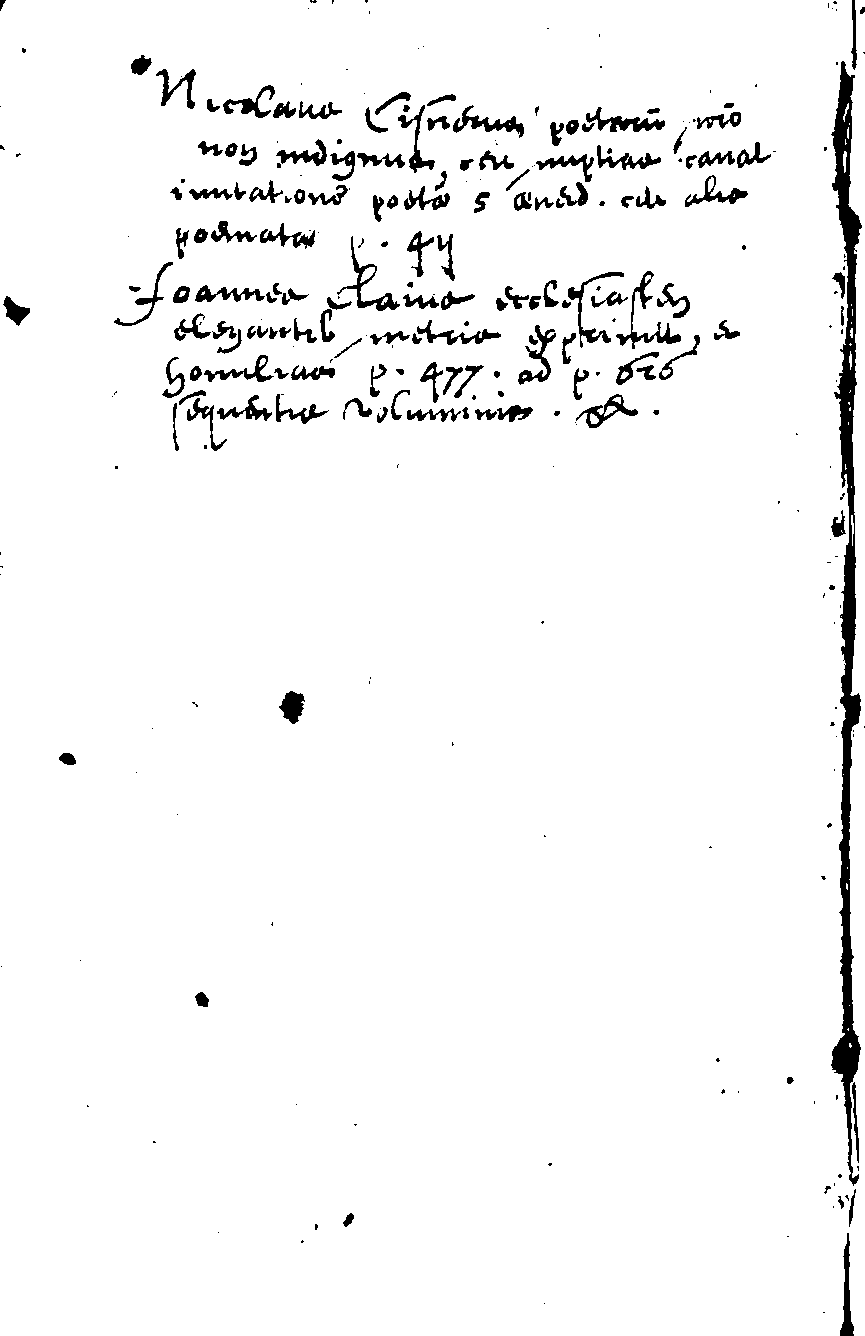 Nicolaus Cisnerus poetarū
non indignus, ceu nuptias canat
imitatione poetæ 5 æneid. cū alia
poemata p. 44
Joannes Claius ecclesiasten
eleganti metris exprimit, et
homilias p. 477. ad p. 626
sequentis voluminis. &.